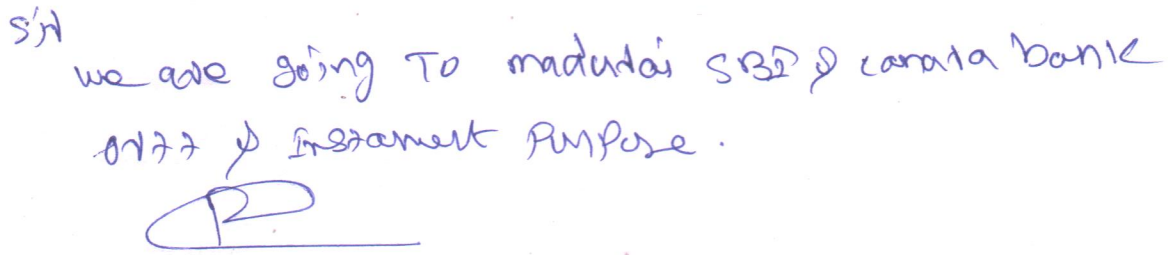 Sir
we are going To madurai SBI & canara bank
& Instament Purpose.